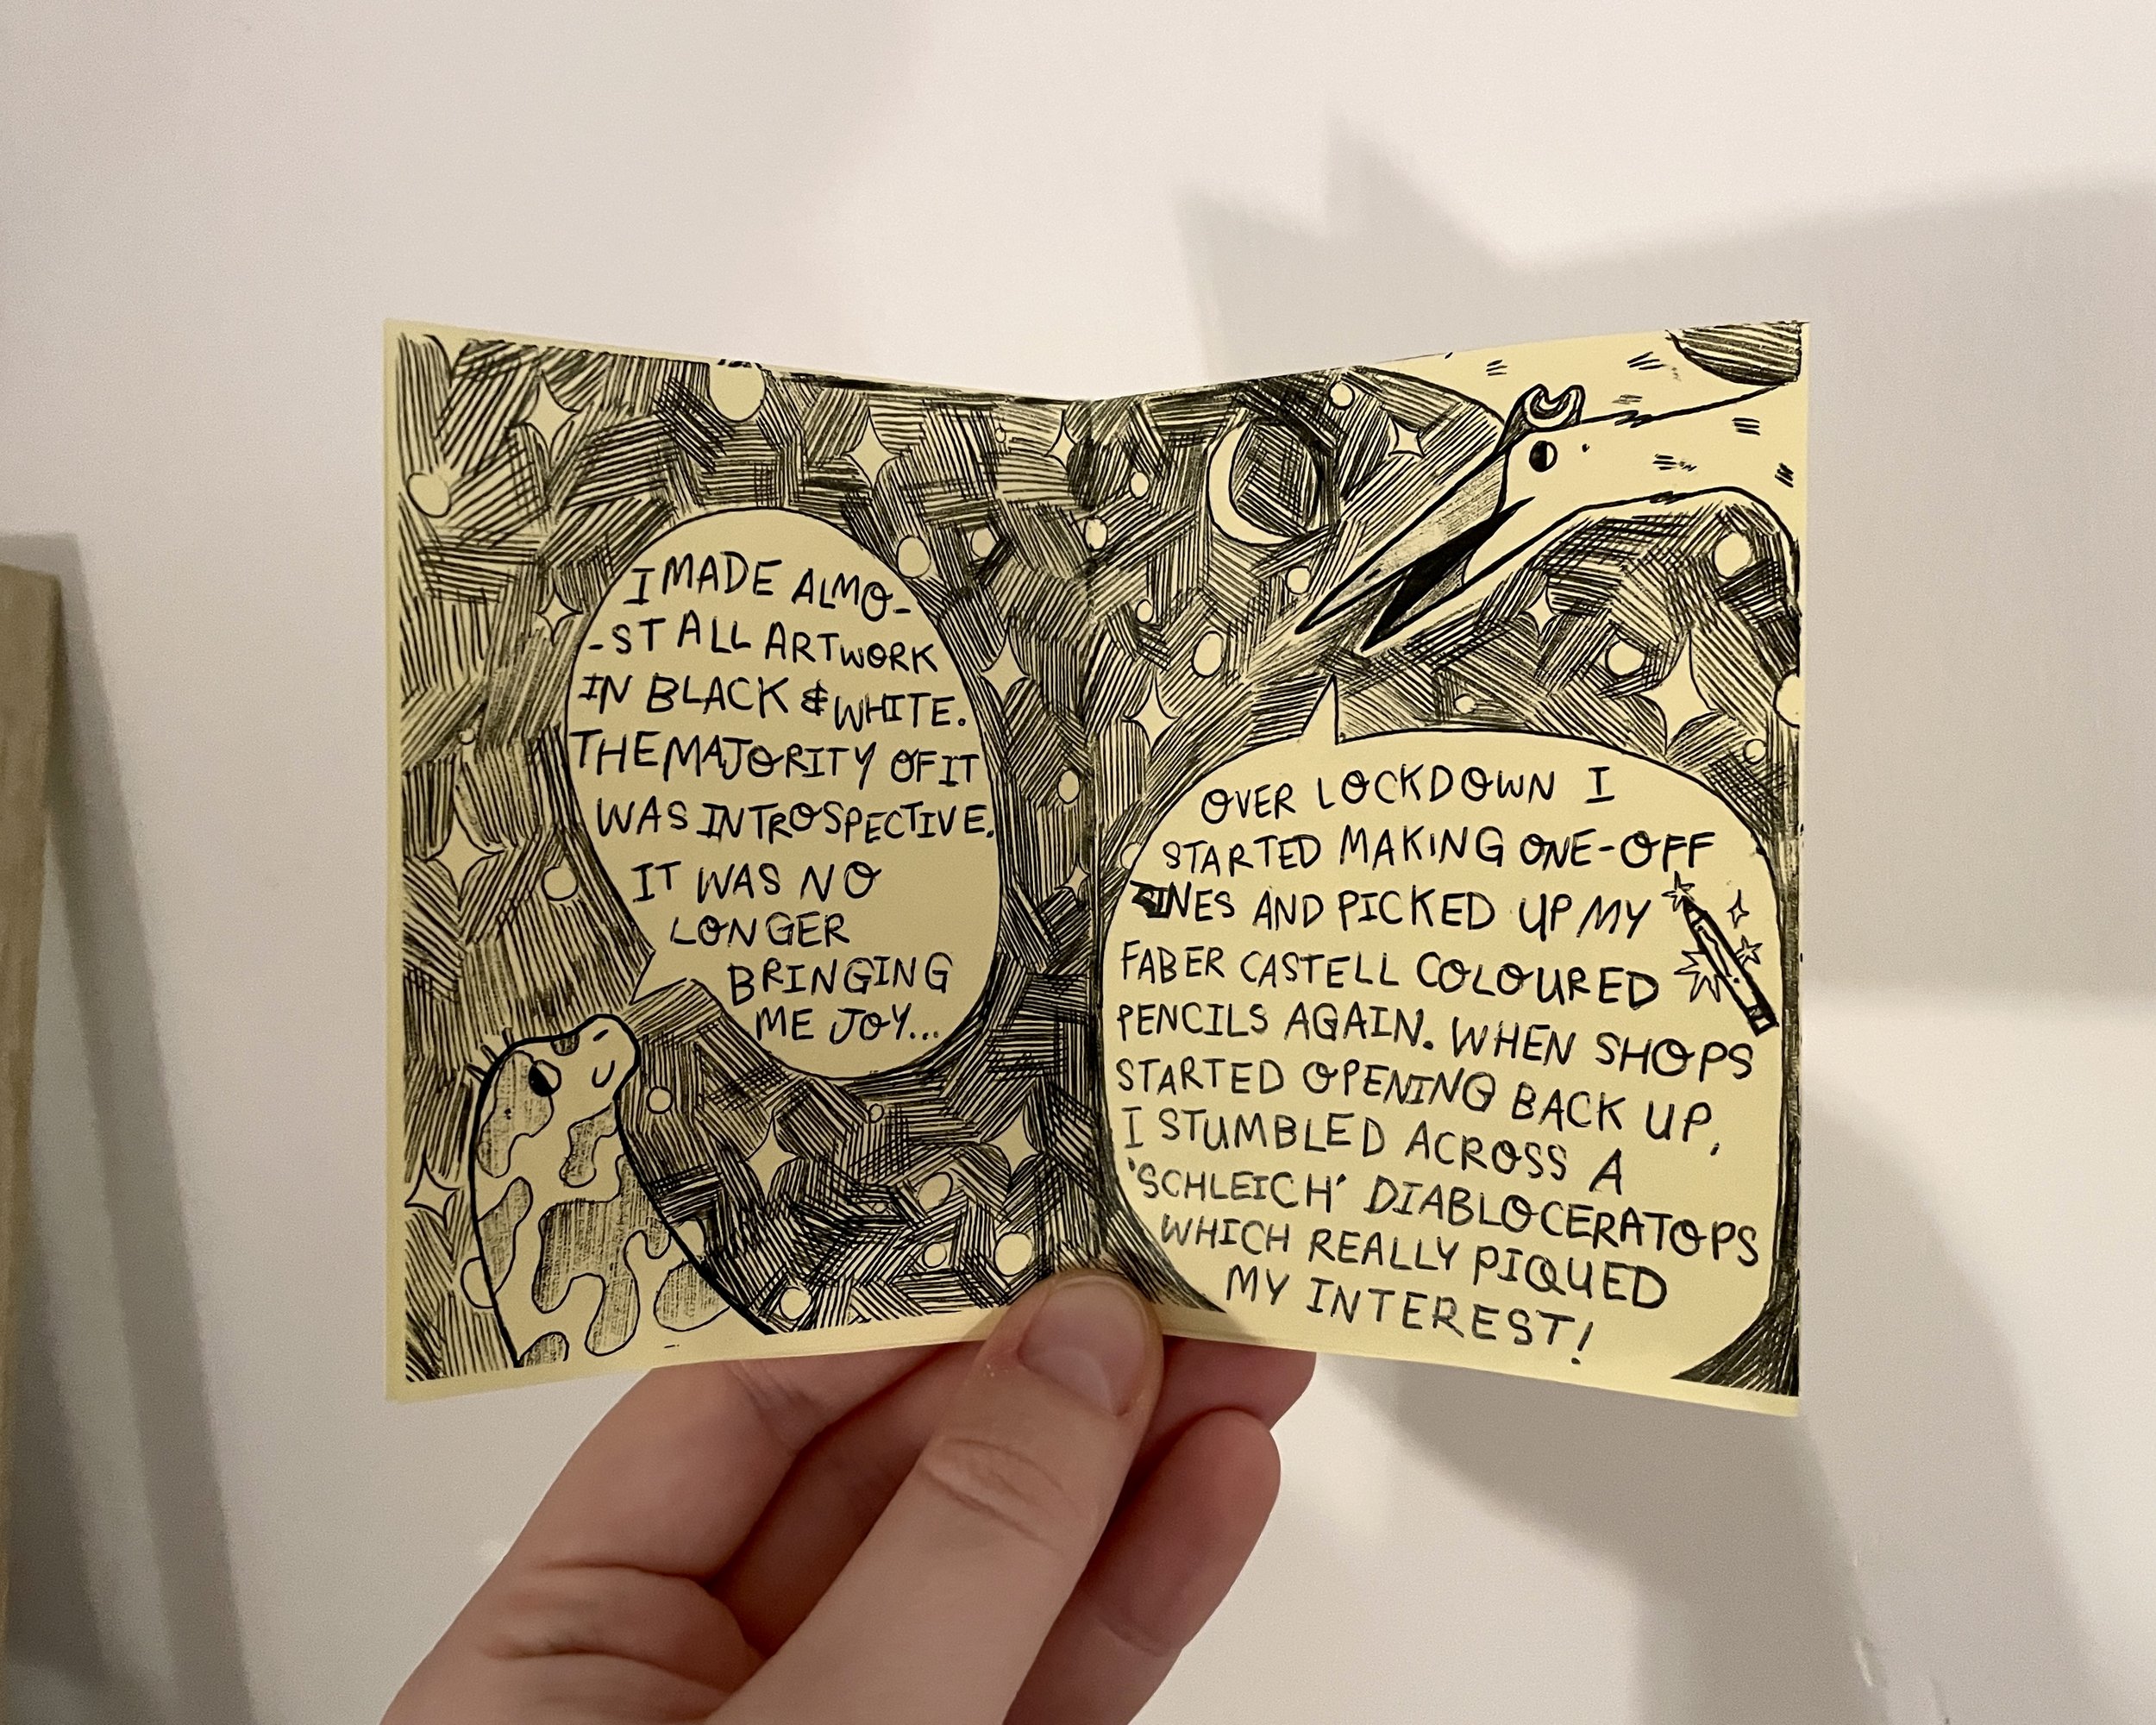 I MADE ALMO-
-ST ALL ARTWORK
IN BLACK & WHITE.
THE MAJORITY OF IT
WAS INTROSPECTIVE.
IT WAS NO
LONGER
BRINGING
ME JOY...
OVER LOCKDOWN I
STARTED MAKING ONE-OFF
ZINES AND PICKED UP MY
FABER CASTELL COLOURED
PENCILS AGAIN. WHEN SHOPS
STARTED OPENING BACK UP,
I STUMBLED ACROSS A
'SCHLEICH' DIABLOCERATOPS
WHICH REALLY PIQUED
MY INTEREST!